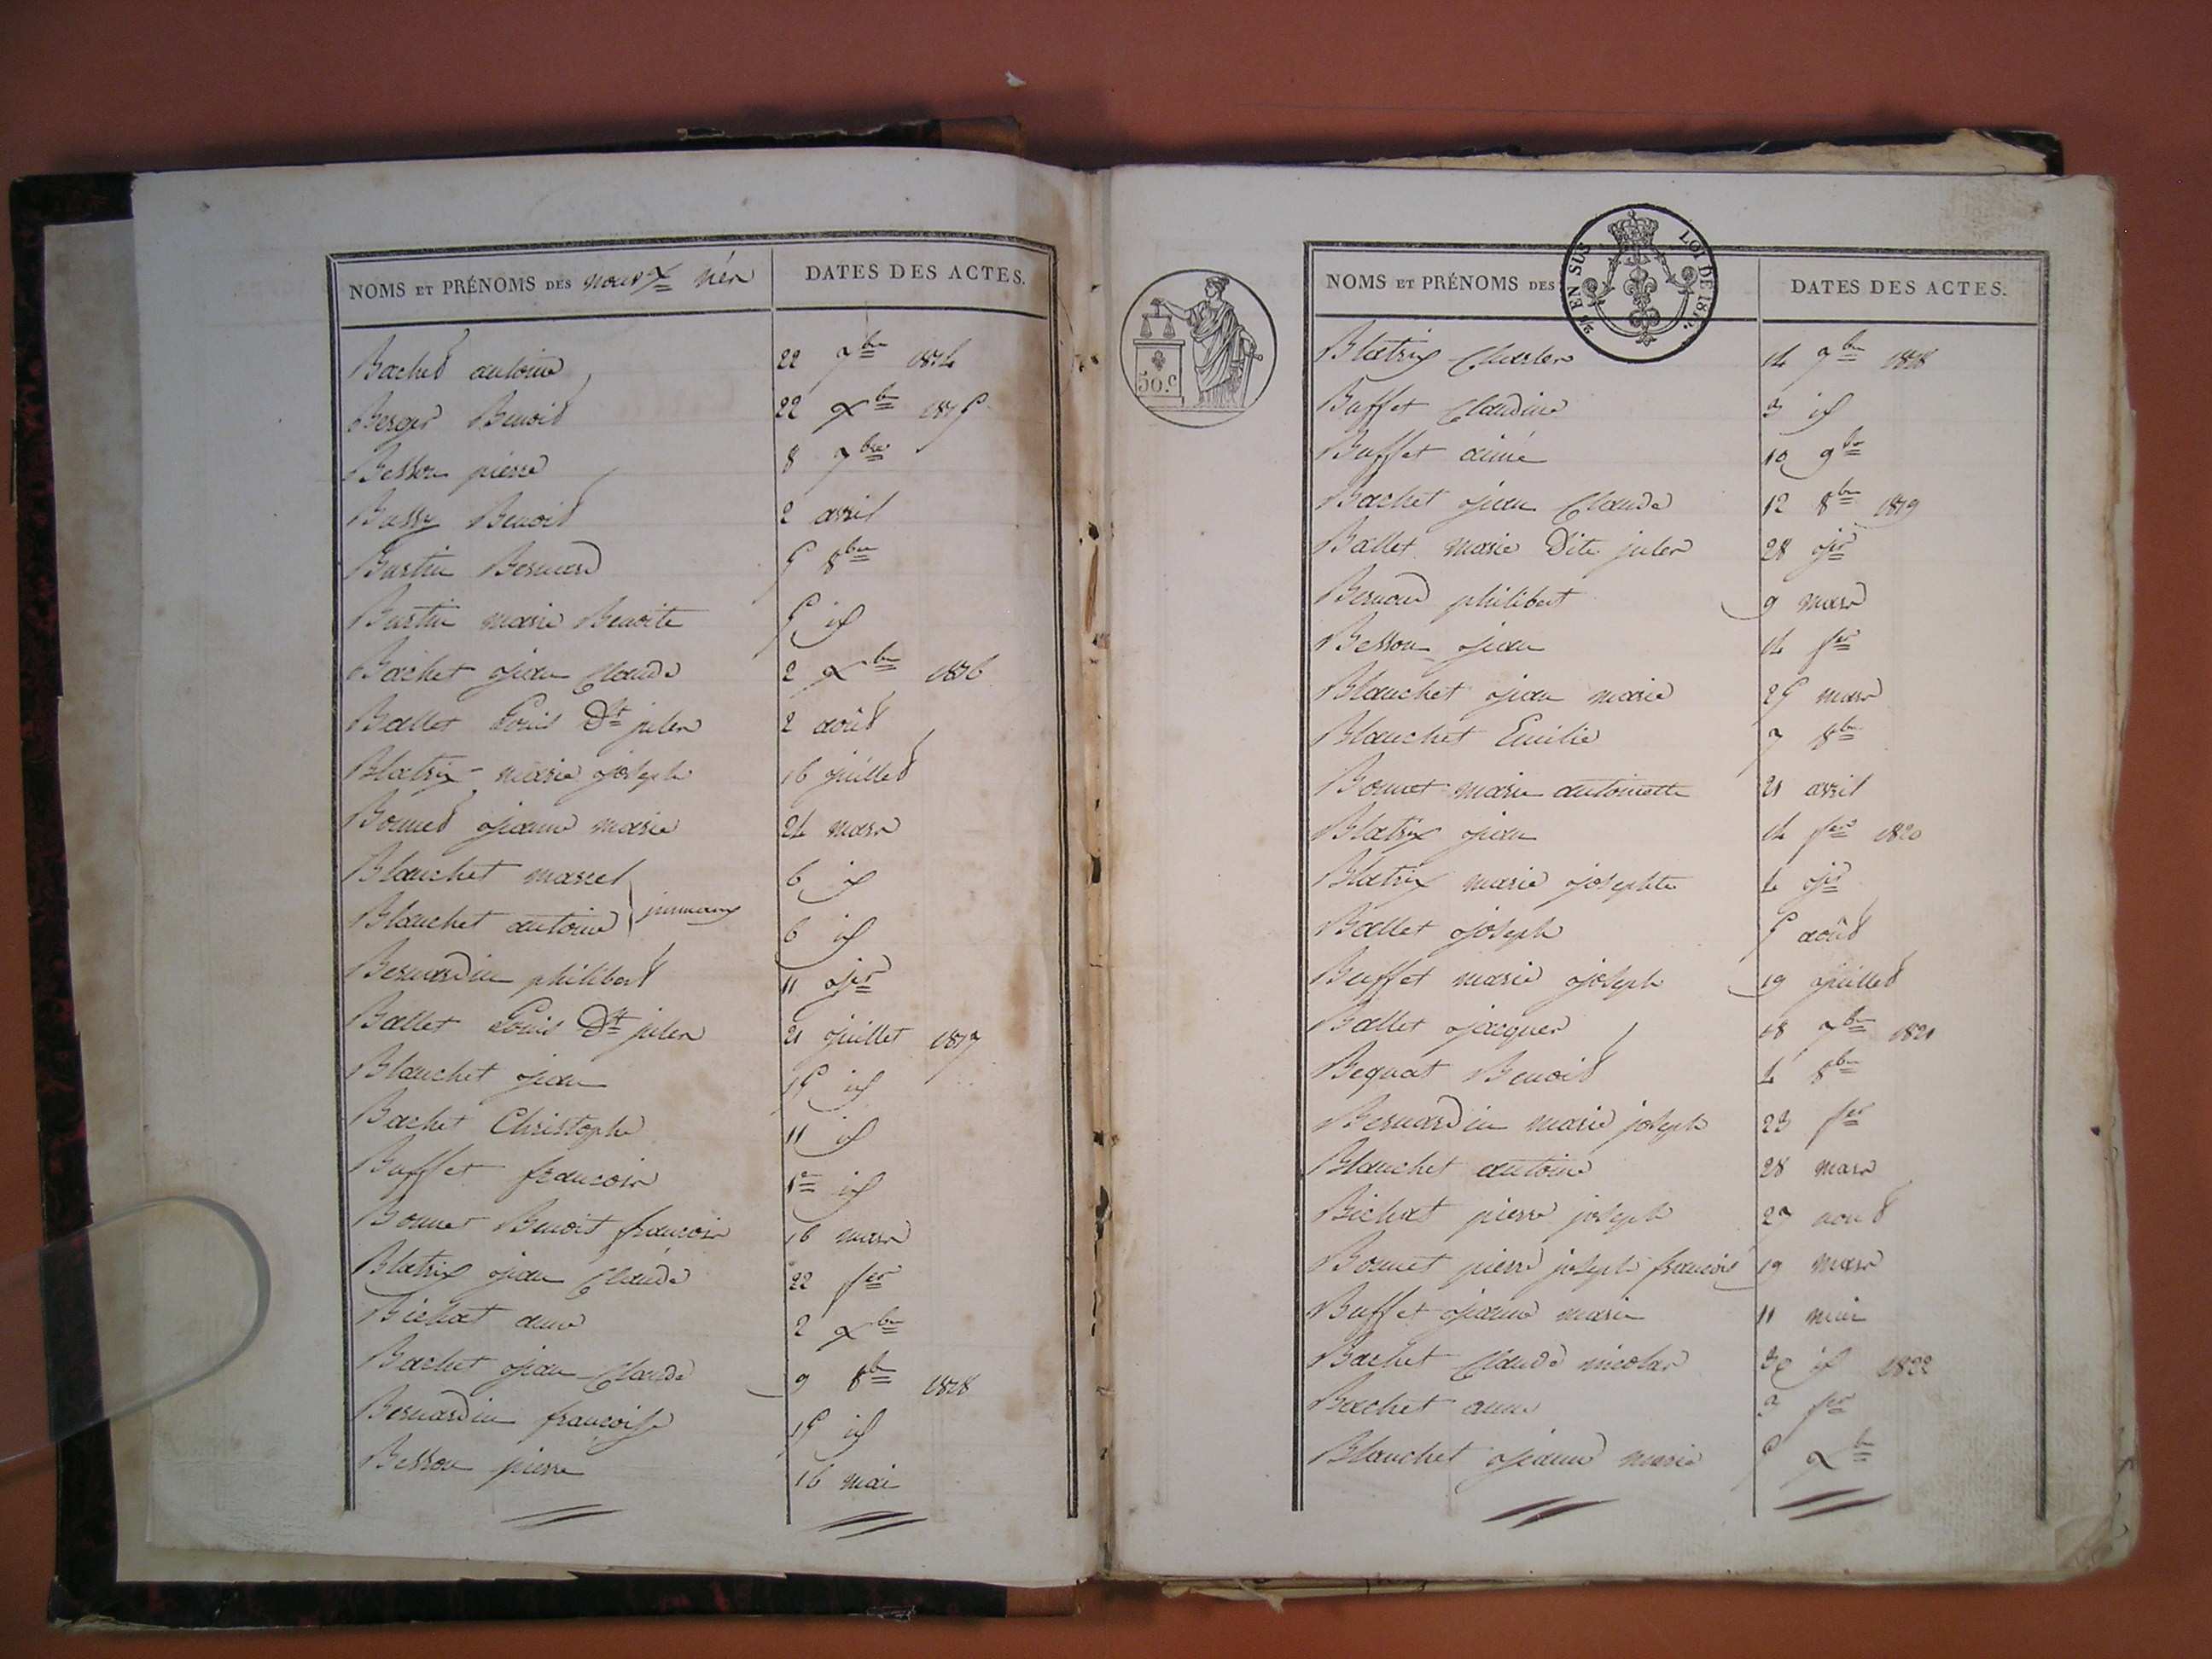 NOMS ET PRÉNOMS DES nouvx nés DATES DES ACTES.
Bachet antoine 22 7bre 1814
Berger Benoit 22 Xbre 1815
Besson pierre 8 7bre
Bussy Benoit 2 avril
Burtin Bernard 5 8bre
Burtin marie Benoite 5 id
Bachet jean Claude 2 Xbre 1816
Ballet Louis Dt julen 2 août
Blatrix marie joseph 16 juillet
Bonnet jeanne marie 24 mars
Blanchet marcel 6 id
Blanchet antoine jumeaux 6 id
Bernardin philibert 11 jer
Ballet Louis Dt julen 21 juillet 1817
Blanchet jean 15 id
Bachet Christophe 11 id
Buffet francois 1er id
Bonnet Benoit francois 16 mars
Blatrix jean Claude 22 fer
Bichat anne 2 Xbre
Bachet jean Claude 9 8bre 1818
Bernardin francoise 15 id
Besson pierre 16 mai
EN SUS LOI DE 18
50 c
NOMS ET PRÉNOMS DES DATES DES ACTES.
Blatrix Charles 14 9bre 1818
Buffet Claudine 3 id
Buffet aimé 10 9bre
Bachet jean Claude 12 8bre 1819
Ballet marie Dite julen 28 jer
Bernard philibert 9 mars
Besson jean 14 fer
Blanchet jean marie 25 mars
Blanchet Emilie 7 8bre
Bonnet marie antoinette 21 avril
Blatrix jean 14 fer 1820
Blatrix marie josephte 4 jer
Ballet joseph 5 août
Buffet marie joseph 19 juillet
Ballet jacques 18 7bre 1821
Bequat Benoit 4 8bre
Bernardin marie joseph 23 fer
Blanchet antoine 28 mars
Bichat pierre joseph 27 aout
Bonnet pierre joseph francois 19 mars
Buffet jeanne marie 11 mai
Bachet Claude nicolas 30 id 1822
Bachet anne 2 fer
Blanchet jeanne marie 5 Xbre